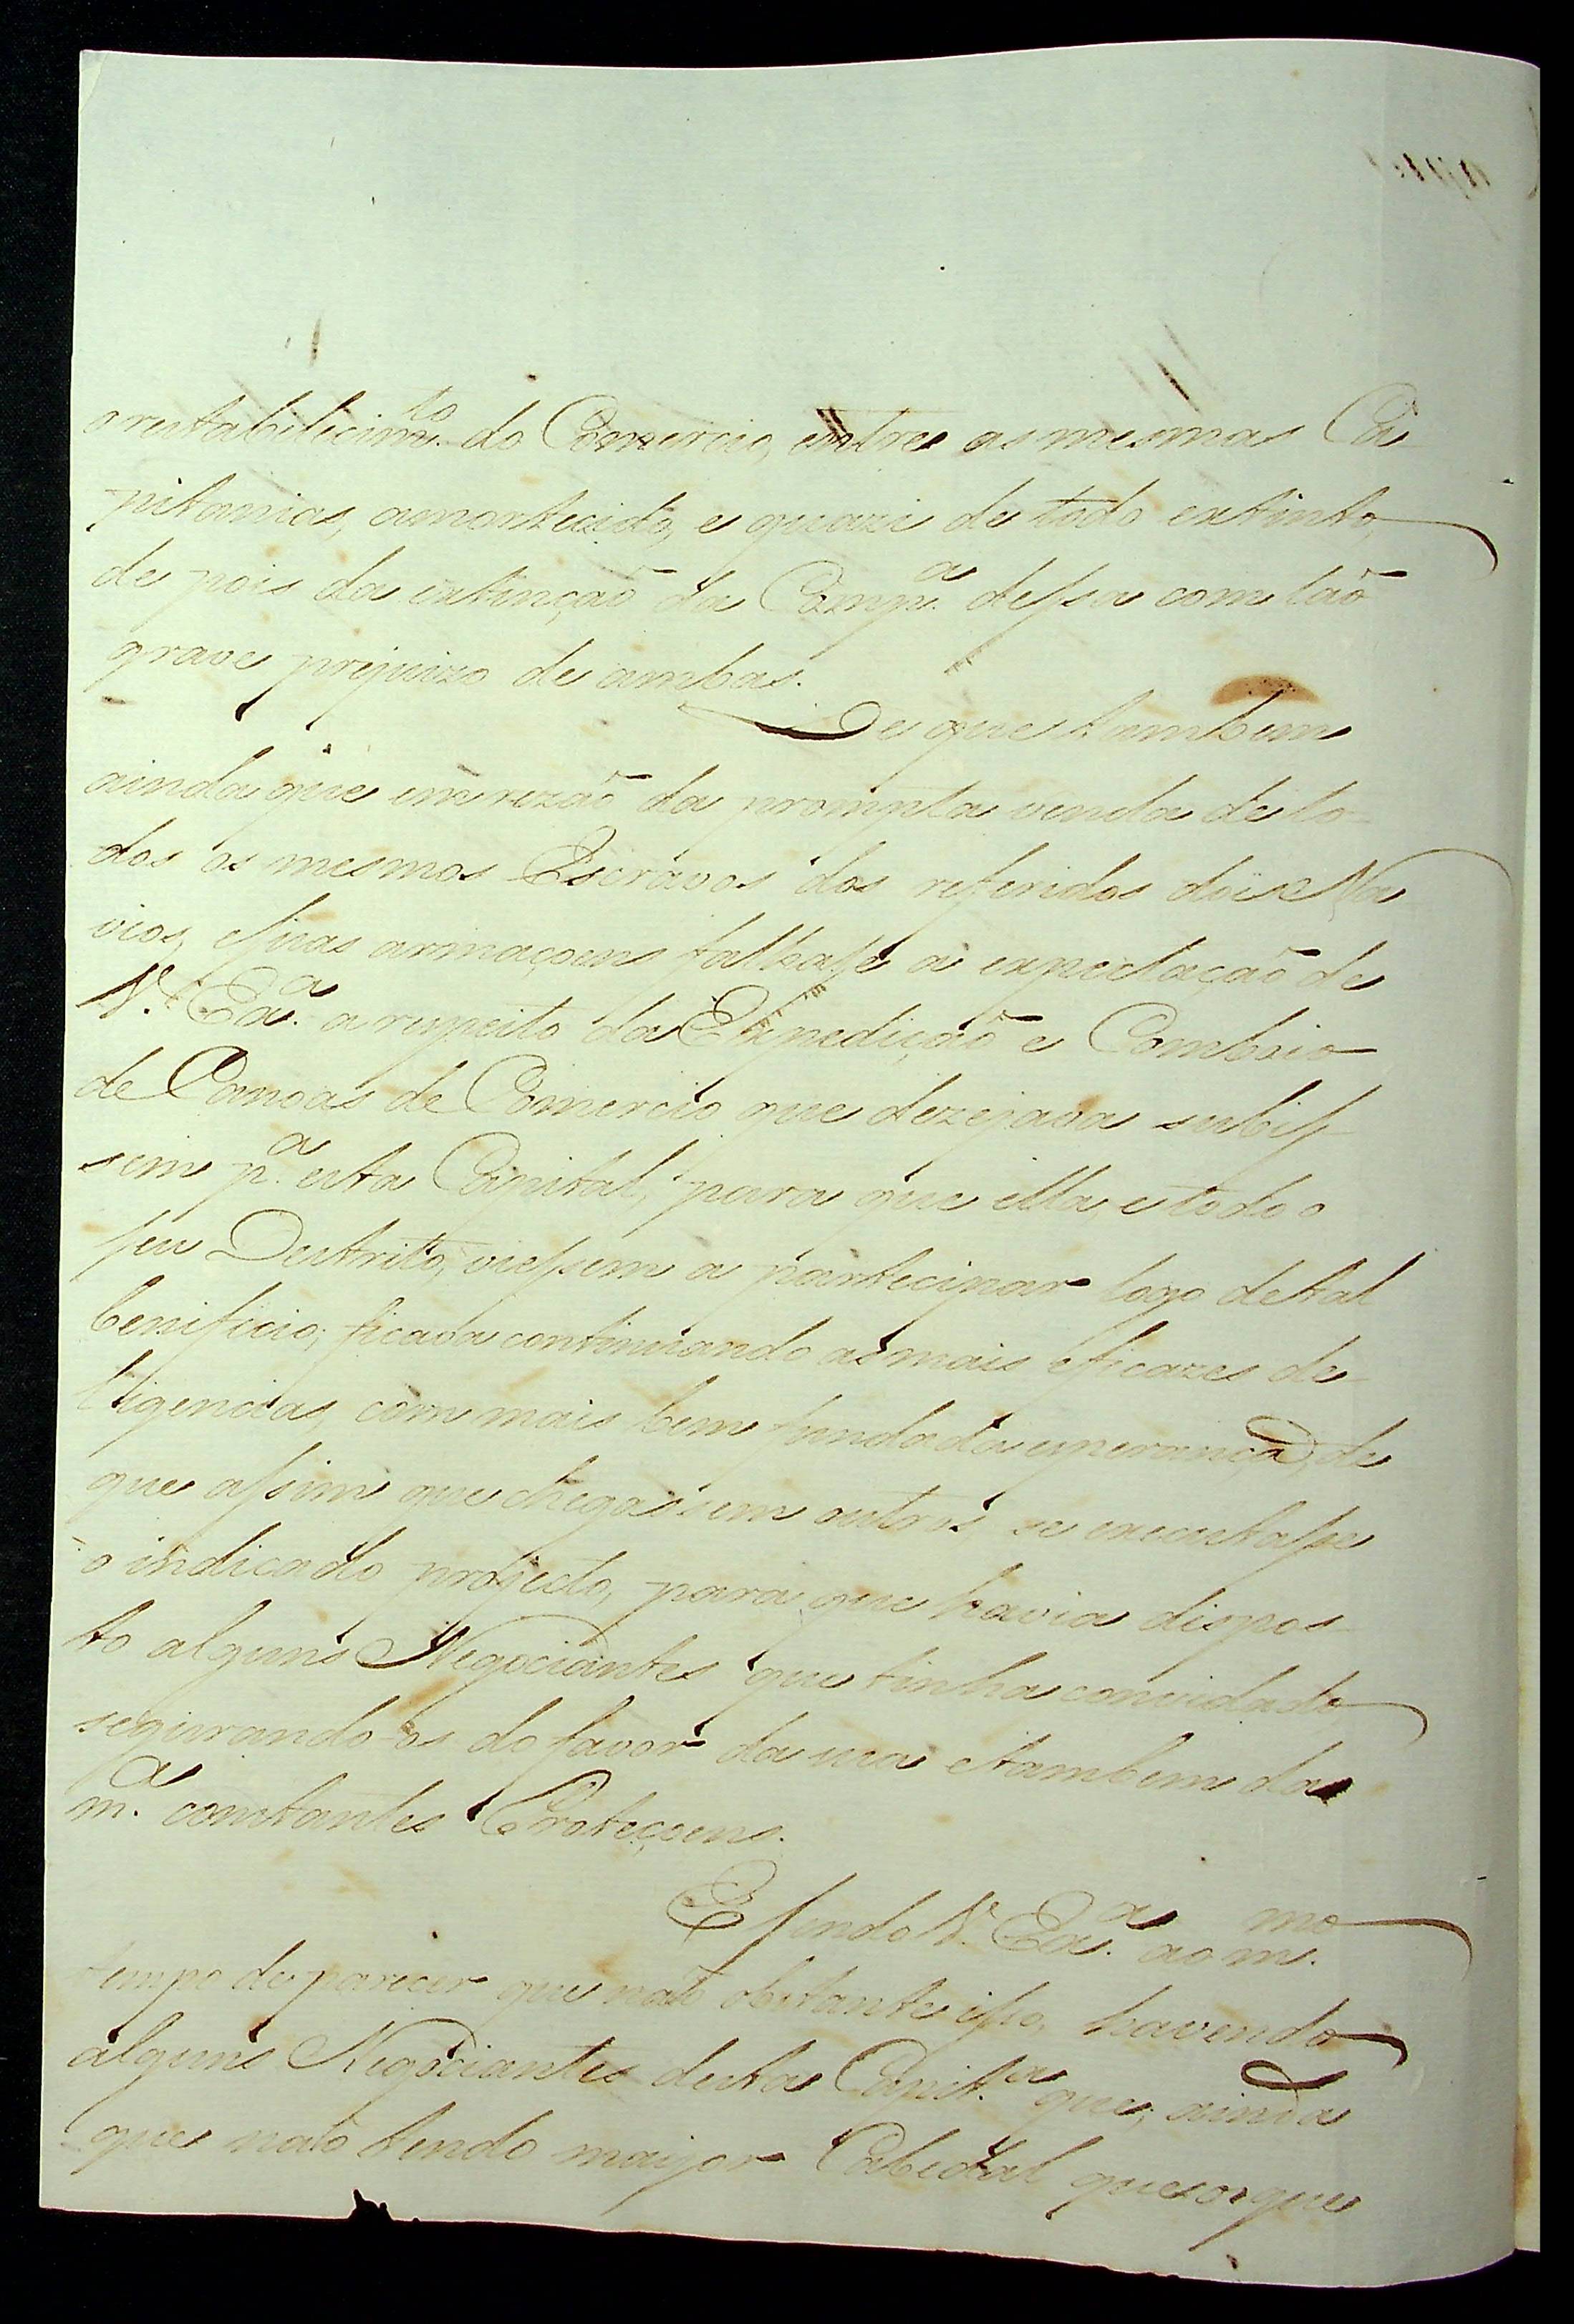 o restabilicim.to do Comercio, entre as mesmas Ca
pitanias, amortecido, e quazi de todo extinto,
de pois da extinção da Comp.a dessa com tão
grave prejuizo de ambas.
De que tambem
ainda que em rezão da prompta venda de to
dos os mesmos Escravos dos referidos dois Na
vios, e suas armaçoens faltasse a expectação de
V. Ex.a a respeito da Expedição e Comboio
de Canoas de Comercio que dezejava subis
sem p.a esta Capital, para que ella, e todo o
seu Destrito, viessem a partecipar logo de tal
benificio; ficava continuando as mais eficazes de
ligencias, com mais bem fundada esperança, de
que assim que chegassem outros se executasse
o indicado projecto, para que havia dispos
to alguns Negociantes que tinha convidado,
segurando-os do favor da sua e tambem da
m.a constantes Proteçoens.
E sendo V. Ex.a ao m.mo
tempo de parecer que não obstante isso, havendo
alguns Negociantes desta Capit.a que, ainda
que não tendo mayor Cabedal que o que